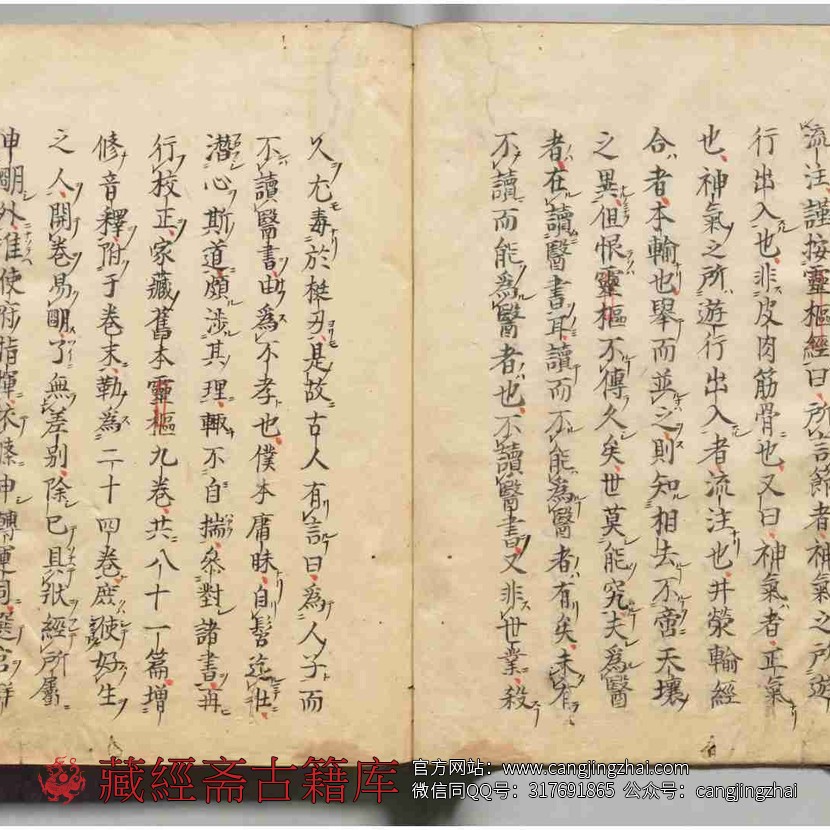 流注謹按靈樞經曰所言節者神氣之所遊
行出入也非皮肉筋骨也又曰神氣者正氣
也神氣之所遊行出入者流注也井滎輸經
合者本輸也舉而並之則知相去不啻天壤
之異但恨靈樞不傳久矣世莫能究夫為醫
者在讀醫書耳讀而不能為醫者有矣未有
不讀而能為醫者也不讀醫書又非世業殺
人尤毒於梃刃是故古人有言曰為人子而
不讀醫書由為不孝也僕本庸昧自髫迄壯
潛心斯道頗涉其理輙不自揣叅對諸書再
行校正家藏舊本靈樞九卷共八十一篇增
修音釋附于卷末勒為二十四卷庶使好生
之人開卷易明了無差别除已具狀經所屬
申明外准使府指揮依條申轉運司選官詳
藏經斋古籍库
官方网站：www.cangjingzhai.com
微信同QQ号：317691865 公众号：cangjingzhai